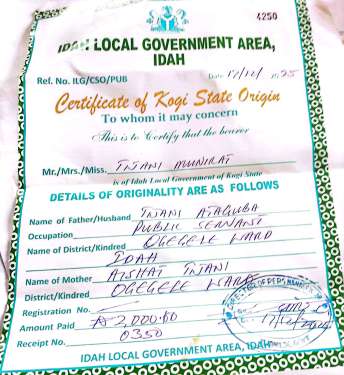 4250
IDAH LOCAL GOVERNMENT AREA,
IDAH
Ref. No. ILG/CSO/PUB Date 17/12/
Certificate of Kogi State Origin
To whom it may concern
This is to Certify that the bearer
Mr./Mrs./Miss. TIJANI MUNIRAT
is of Idah Local Government of Kogi State
DETAILS OF ORIGINALITY ARE AS FOLLOWS
Name of Father/Husband TIJANI ATAGUBA
Occupation PUBLIC SERVANT
Name of District/Kindred OGEGELE WARD
IDAH
Name of Mother AISHAT TIJANI
District/Kindred OGEGELE WARD
Registration No.
Amount Paid ₦2,000.00
Receipt No. 0350
IDAH LOCAL GOVERNMENT AREA, IDAH